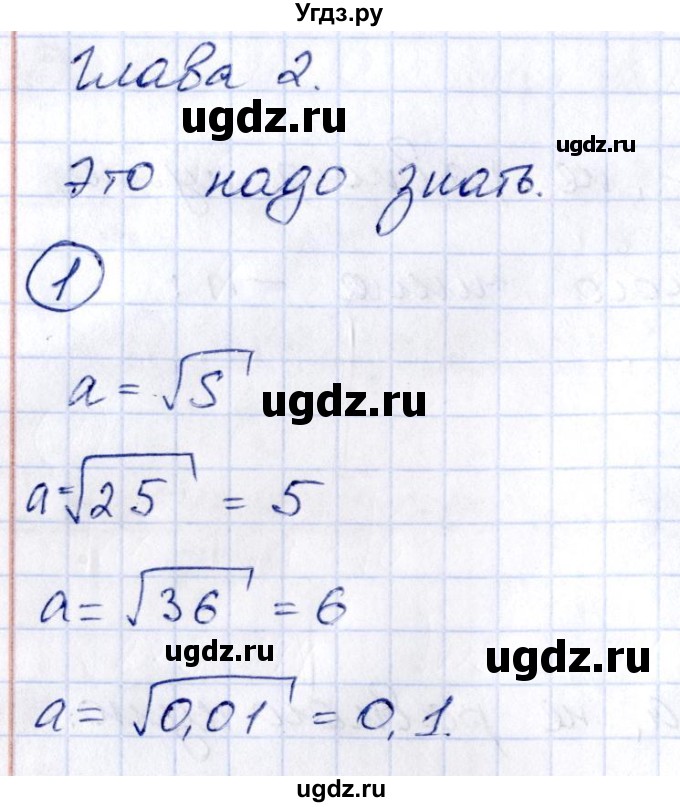 Угдз.ру
Глава 2.
ugdz.ru
ugdz.ru
Это надо знать.
1
a = √S
ugdz.ru
a = √25 = 5
a = √36 = 6
ugdz.ru
ugdz.ru
a = √0,01 = 0,1.
ugdz.ru